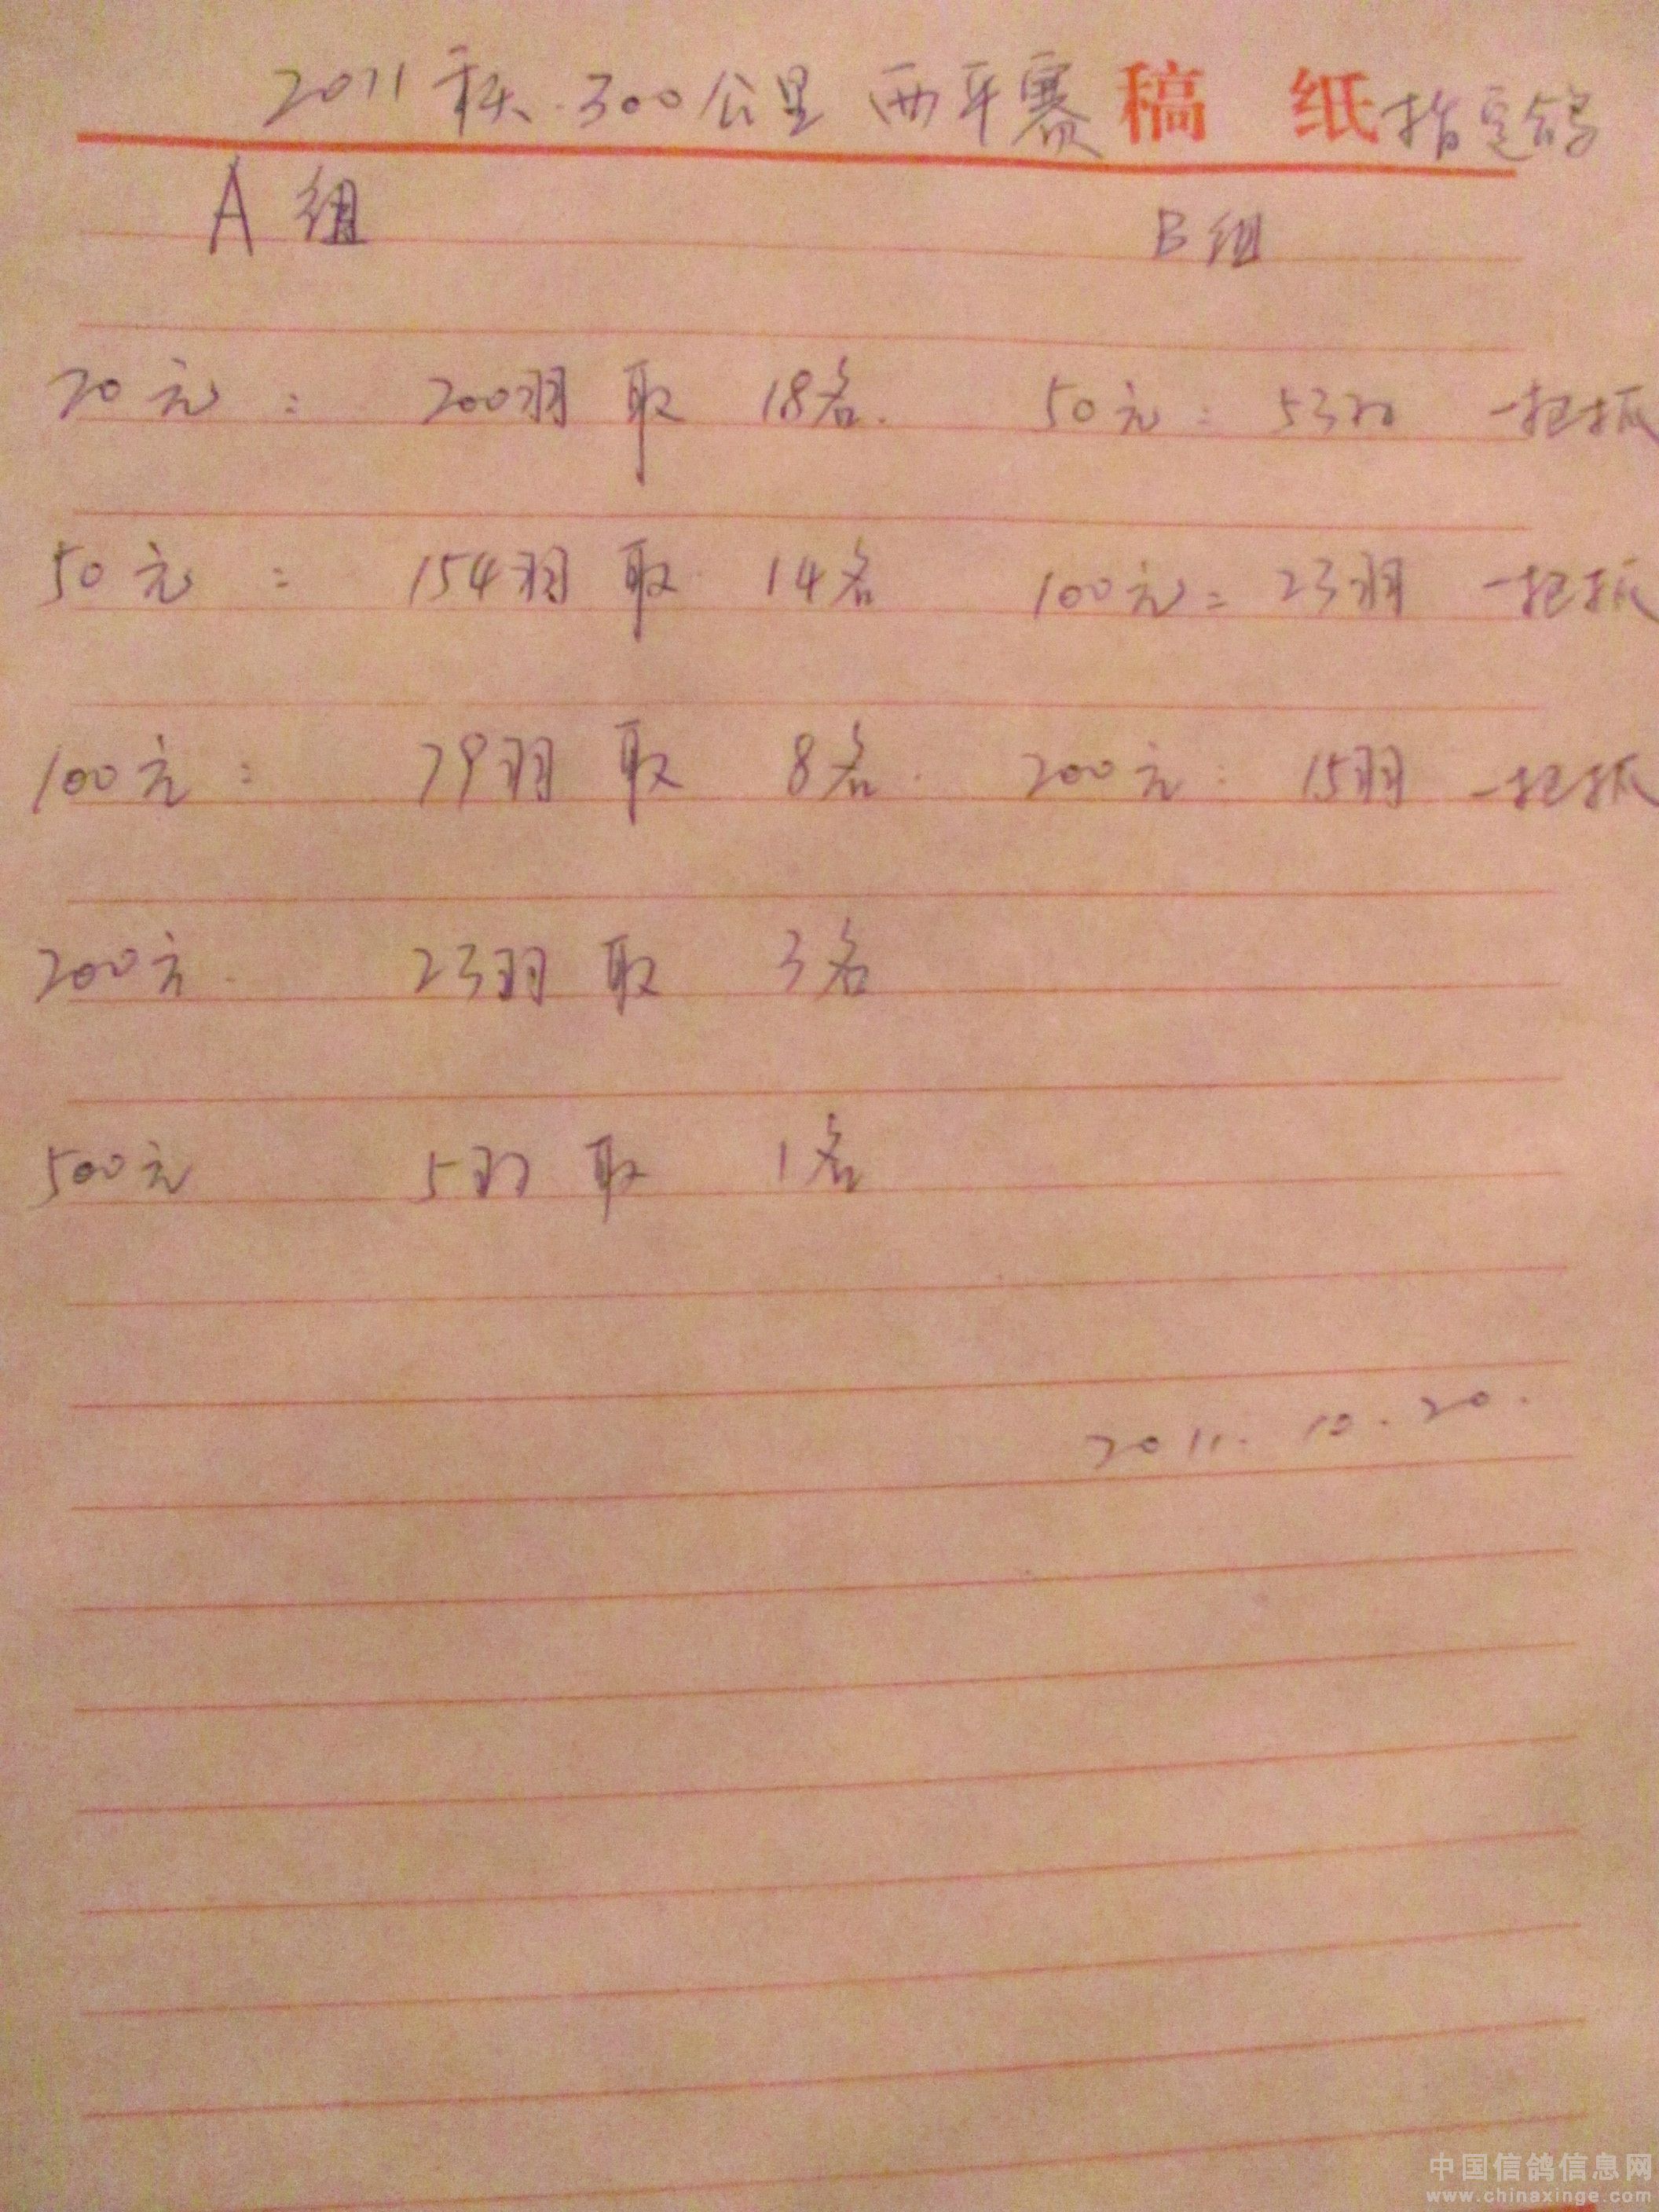 2011秋.300公里 西平赛 稿 纸 指定鸽
A 组 B 组
20元: 200羽 取 18名. 50元: 53羽 一把抓
50元: 154羽 取 14名 100元: 23羽 一把抓
100元: 79羽 取 8名. 200元: 15羽 一把抓
200元. 23羽 取 3名
500元 5羽 取 1名
2011. 10. 20.
中国信鸽信息网
www.chinaxinge.com